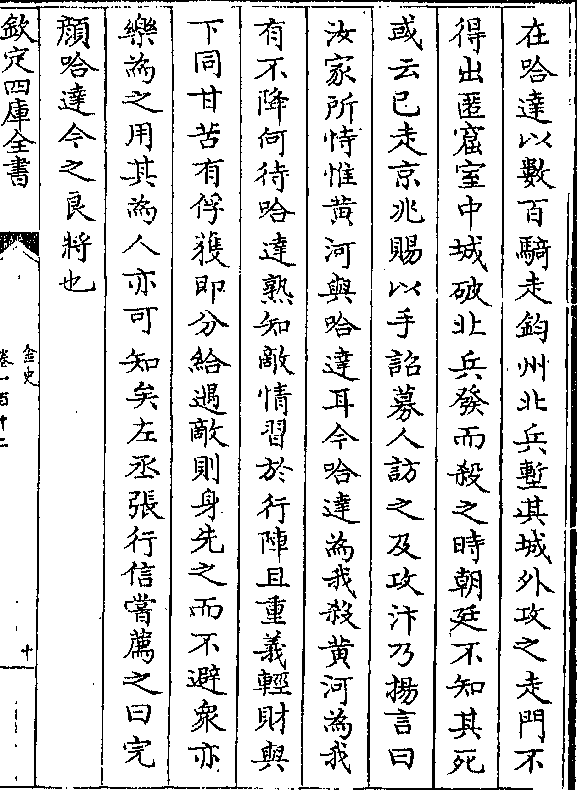 在哈達以數百騎走鈞州北兵塹其城外攻之走門不
得出匿窟室中城破北兵發而殺之時朝廷不知其死
或云已走京兆賜以手詔募人訪之及攻汴乃揚言曰
汝家所恃惟黄河與哈達耳今哈達為我殺黄河為我
有不降何待哈達熟知敵情習於行陣且重義輕財與
下同甘苦有俘獲即分給遇敵則身先之而不避衆亦
樂為之用其為人亦可知矣左丞張行信嘗薦之曰完
顔哈達今之良將也
欽定四庫全書
金史
卷一百十二
十